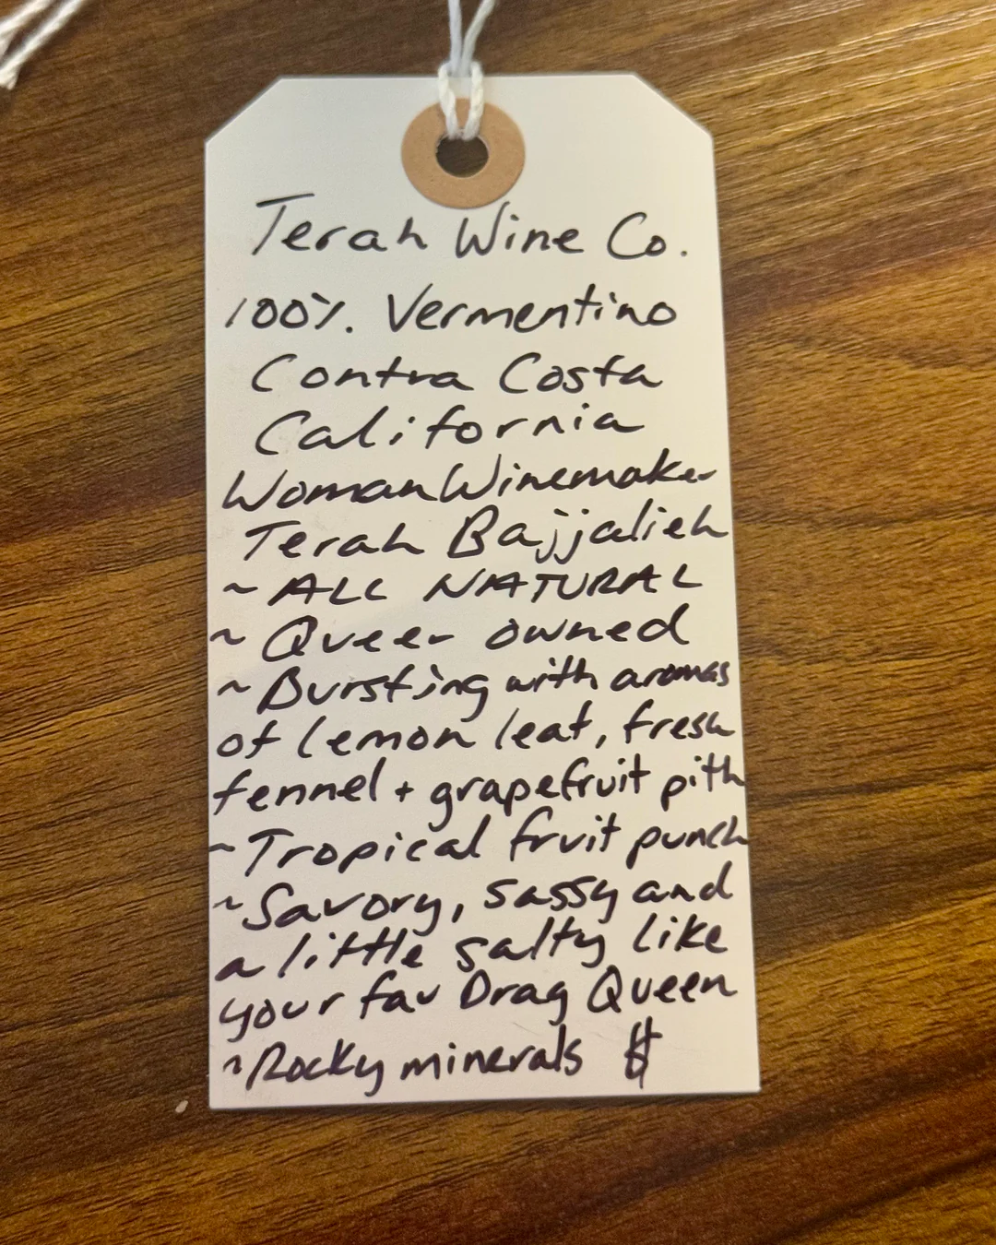 Terah Wine Co.
100%. Vermentino
Contra Costa
California
Woman Winemaker
Terah Bajjalieh
~ ALL NATURAL
~ Queer owned
~ Bursting with aromas
of lemon leaf, fresh
fennel + grapefruit pith
~ Tropical fruit punch
~ Savory, sassy and
a little salty like
your fav Drag Queen
~ Rocky minerals $